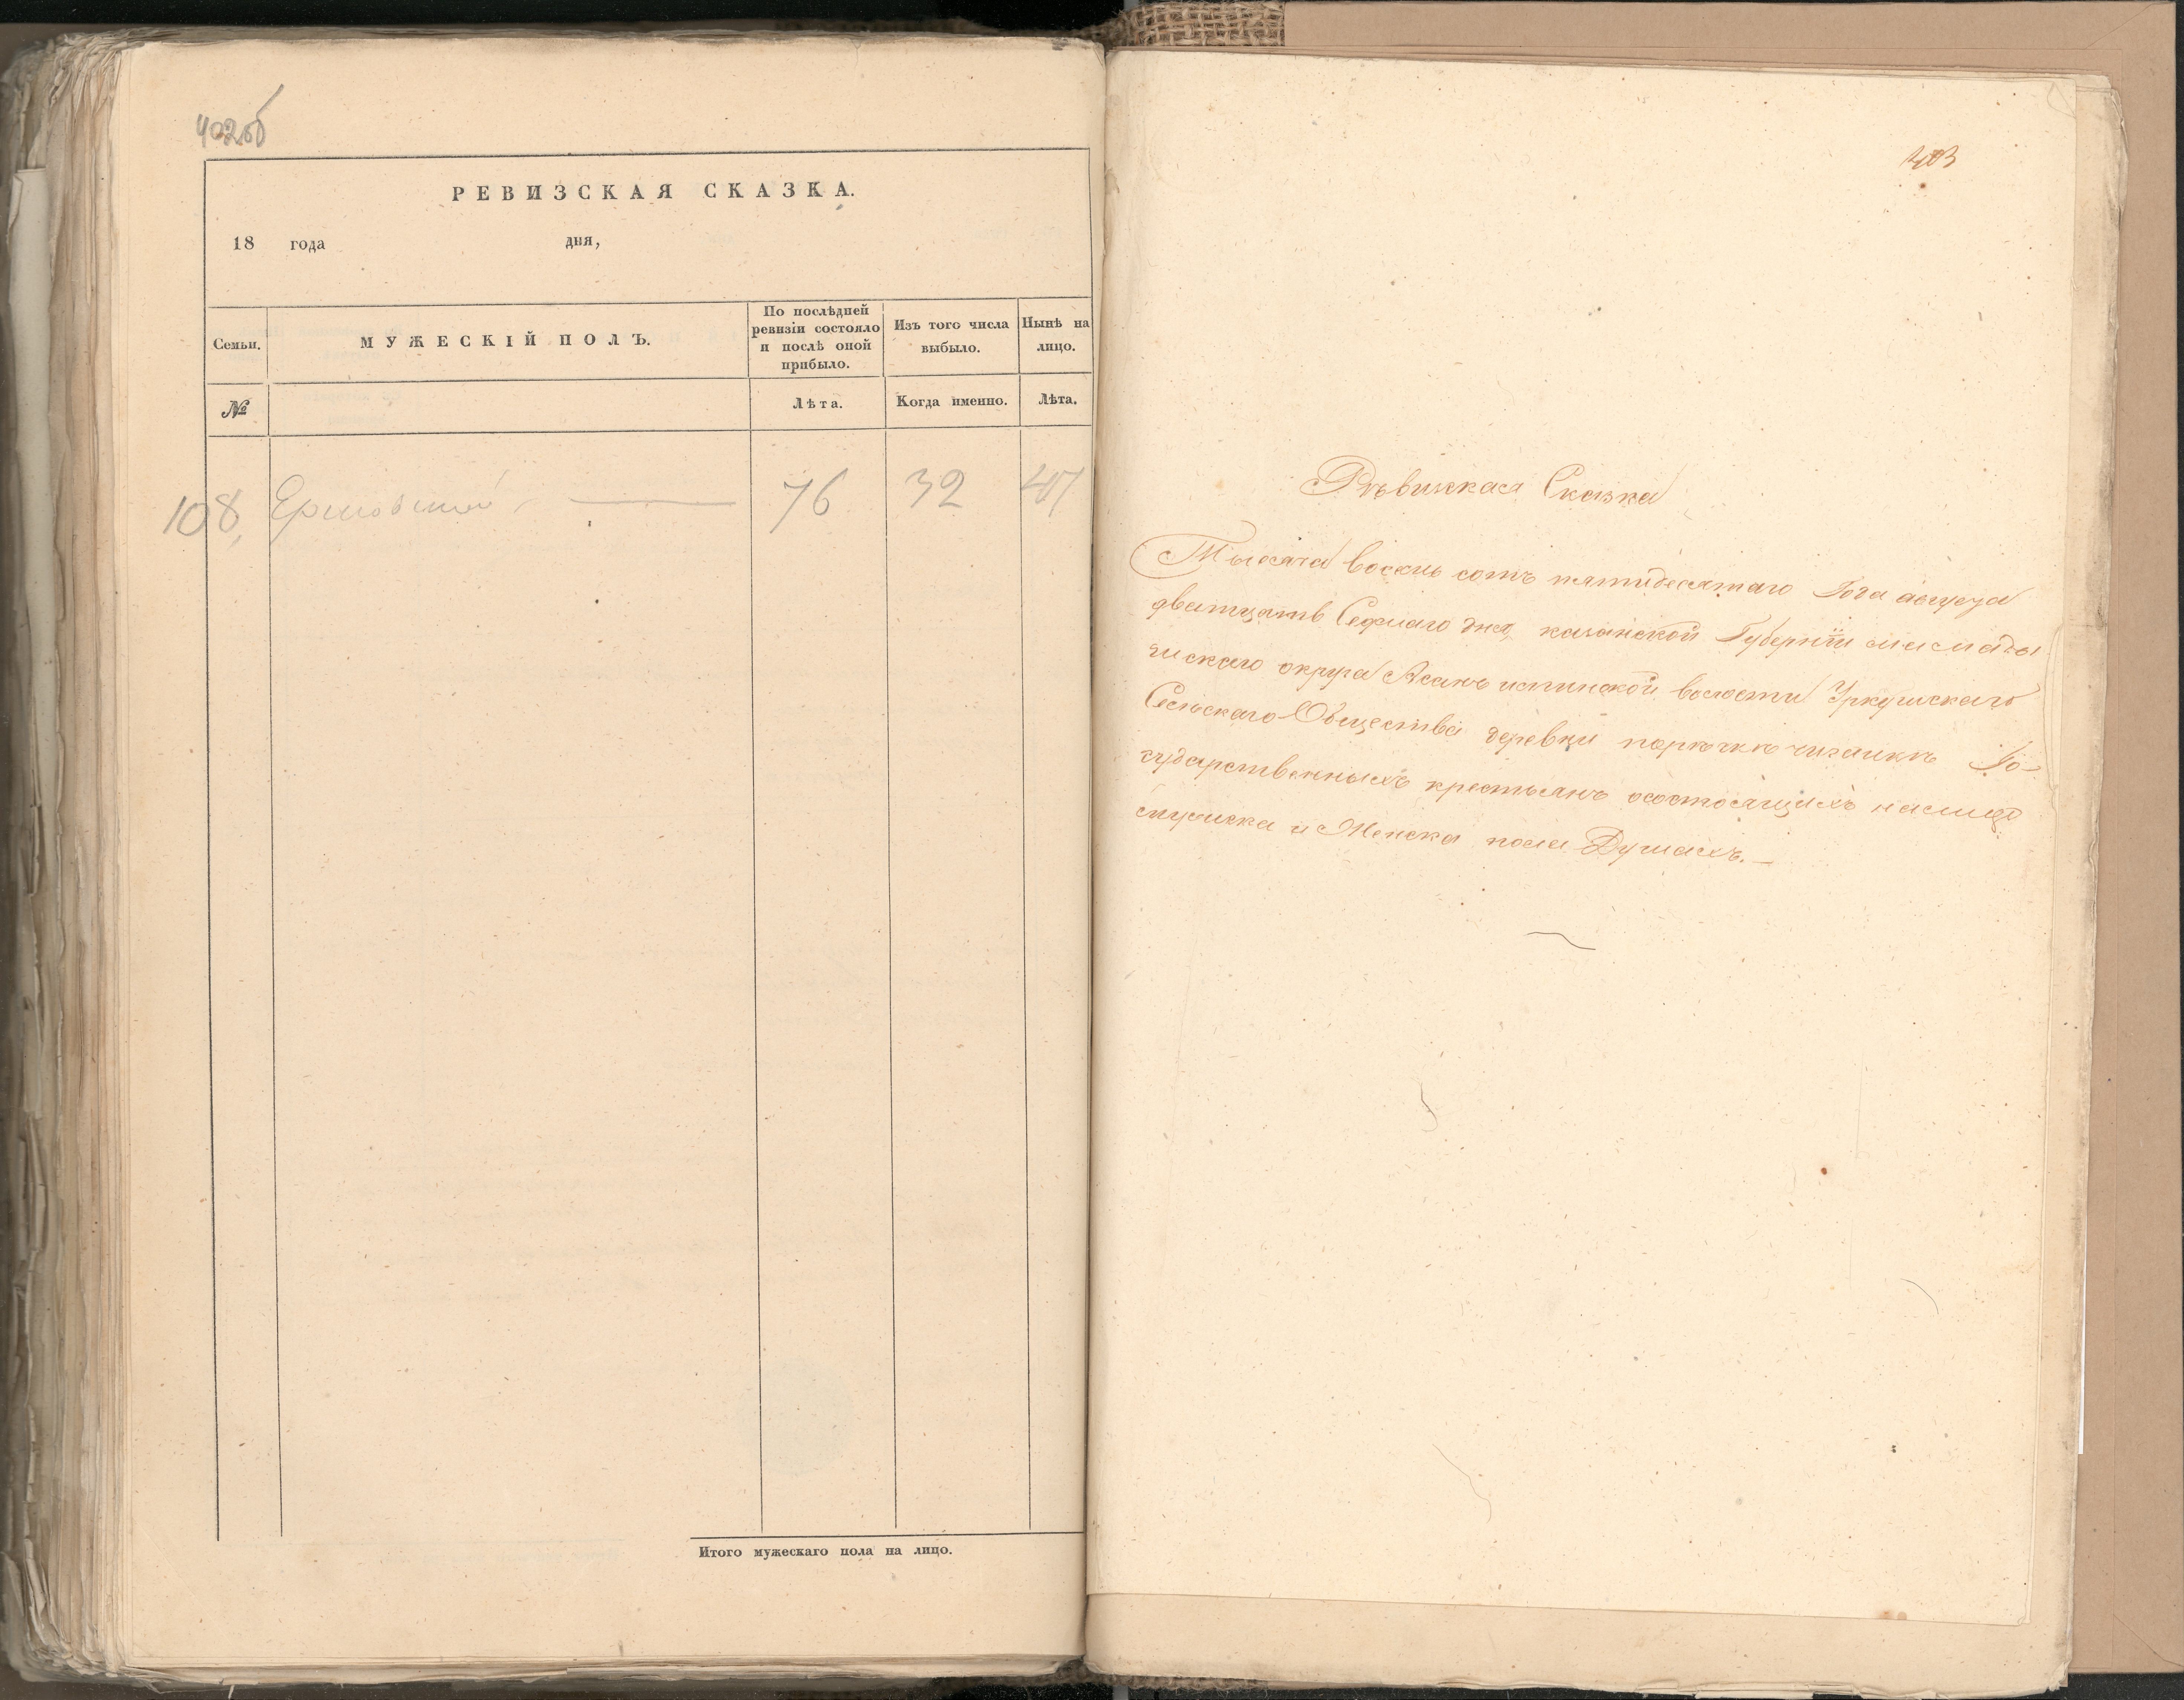 402об
РЕВИЗСКАЯ СКАЗКА.
18 года дня,
Семьи.
МУЖЕСКІЙ ПОЛЪ.
По послѣдней ревизіи состояло и послѣ оной прибыло.
Изъ того числа выбыло.
Нынѣ на лицо.
№
Лѣта.
Когда именно.
Лѣта.
108, 76 32 47
Итого мужескаго пола на лицо.
403
Рѣвизкая Сказка
Тысяча восемь сотъ пятидесятаго Года августа
дватцать Седмаго дня, казанской Губерніи мамады
шскаго округа Асанъ илгинской волости Уркушскаго
Сельскаго Общества деревни
сударственныхъ крестьянъ осостоящихъ налицо
мужска и Женска пола Душахъ.—